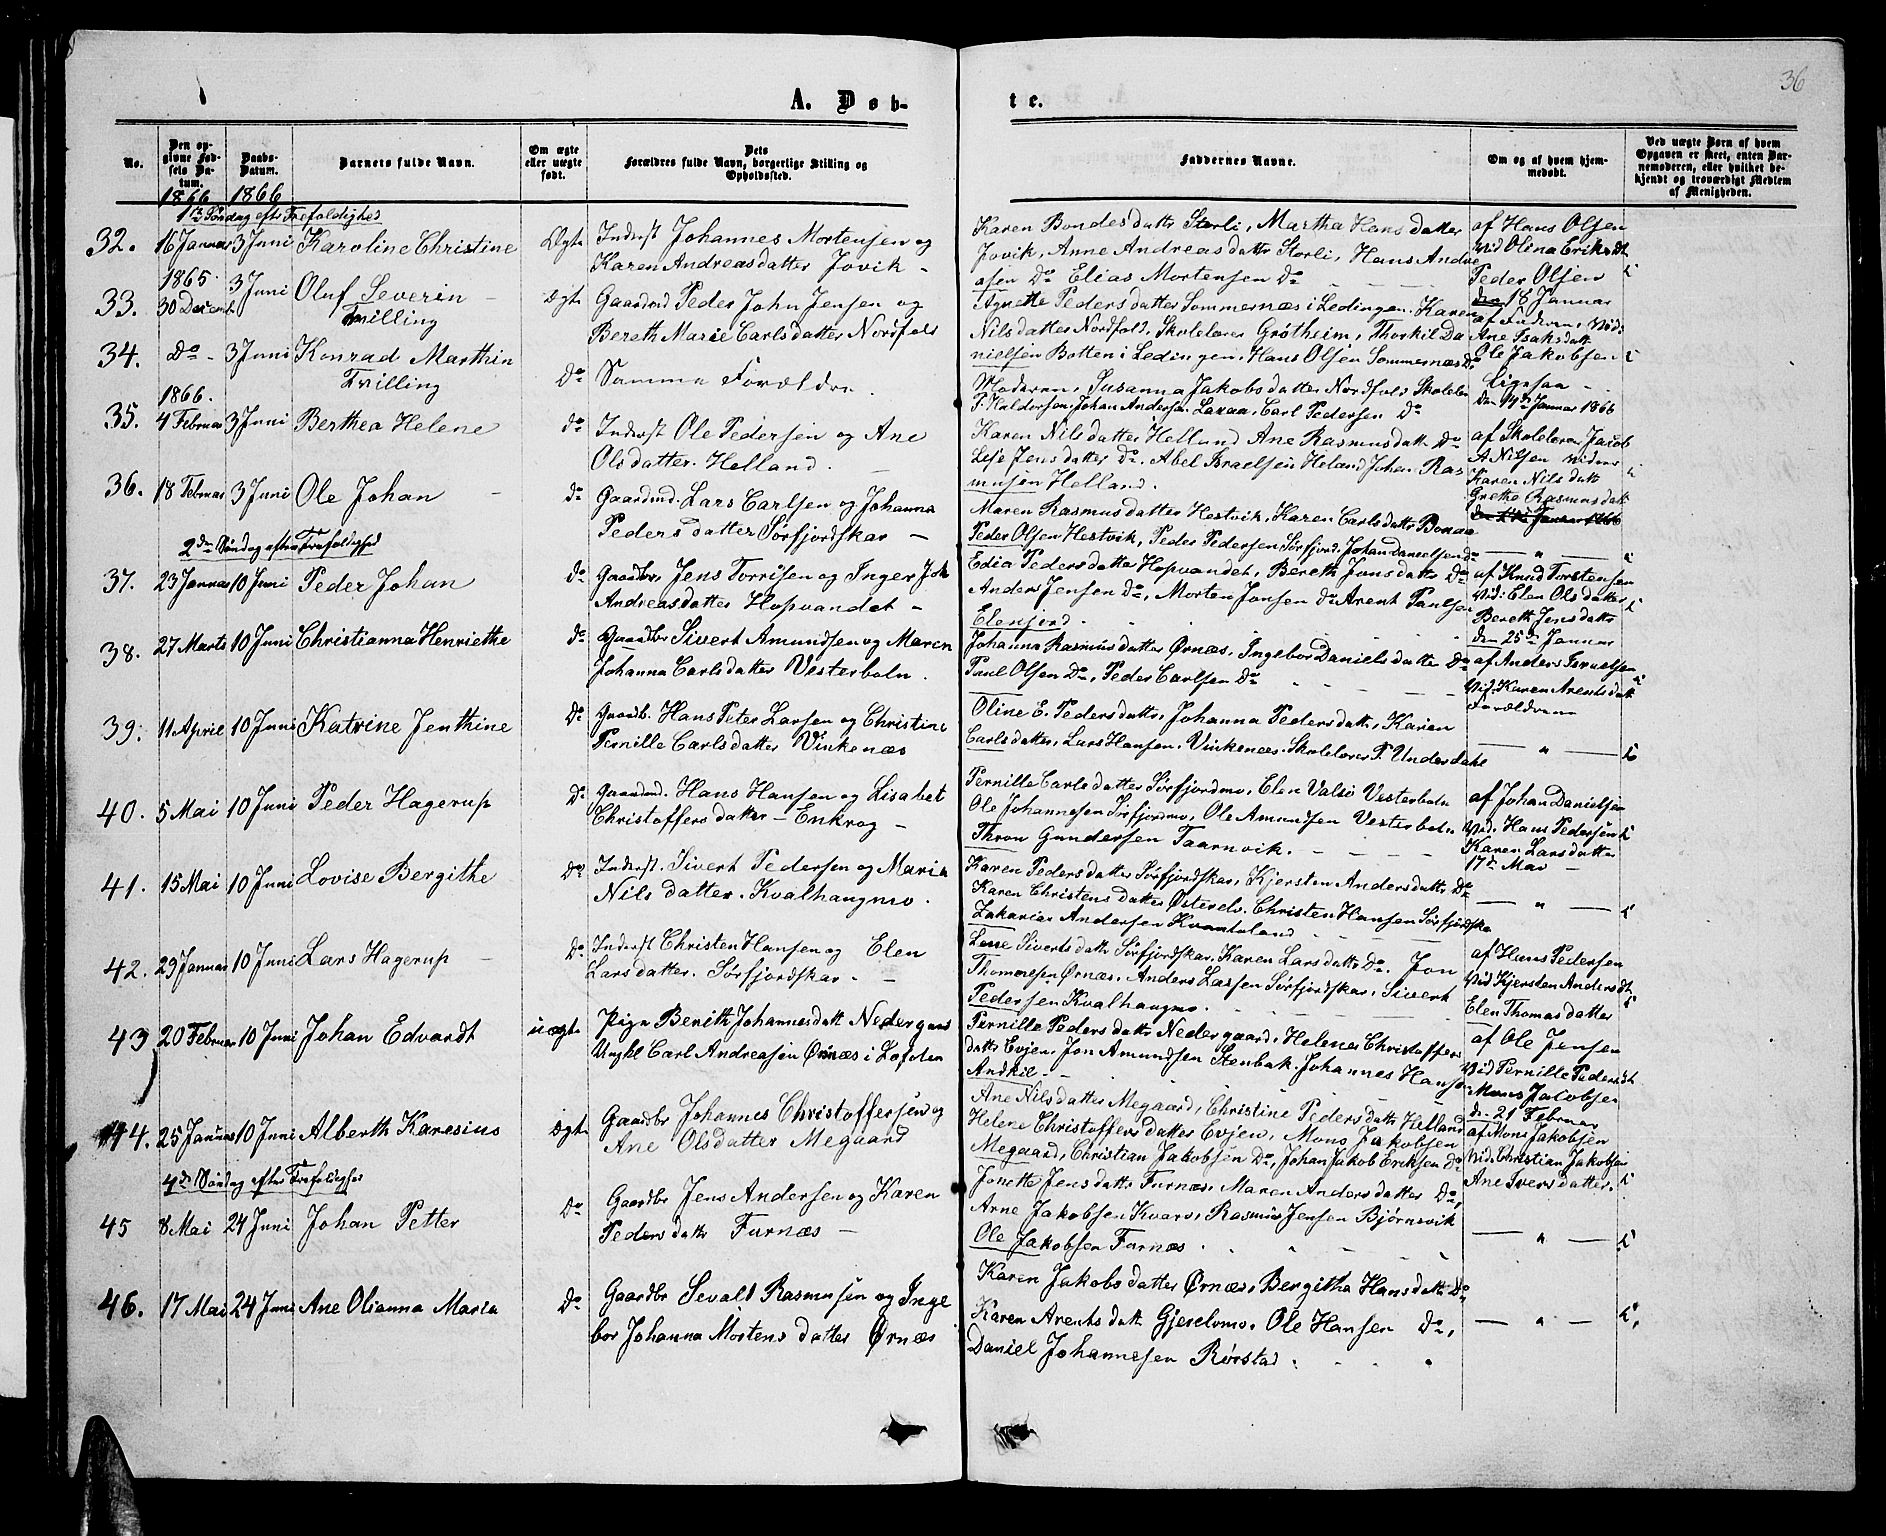 36
A. Døb-
te.
No.
Den opgivne Fødsels Datum.
Daabs-Datum.
Barnets fulde Navn.
Om ægte eller uægte født.
Dets Forældres fulde Navn, borgerlige Stilling og Opholdssted.
Faddernes Navne.
Om og af hvem hjemmedøbt.
Ved uægte Børn af hvem Opgaven er skeet, enten Barnemoderen, eller hvilket bekjendt og troværdigt Medlem af Menigheden.
1866 1866
1ste Søndag efter Trefoldighed
32. 16 Januar 3 Juni Karoline Christine Ægte Inderst Johannes Mortensen og
Karen Andreasdatter Jovik -
Karen Bondesdatter Storli, Martha Hansdatter
Jovik, Anne Andreasdatter Storli, Hans Andre
asen Do Elias Mortensen Do
af Hans Olsen
Vid Olina Eriksdt
Peder Olsen
den 18 Januar
1865
33. 30 Decemb 3 Juni Oluf Severin - Ægt. Gaardmd Peder John Jensen og
Tvilling
Bereth Marie Carlsdatter Nordfold
Agnette Pedersdatter Sommernæs i Lødingen. Karen
Nilsdatter Nordfold, Skolelærer Grøtheim, Thorkil Da
nielsen Botten i Lødingen, Hans Olsen Sommernæs Do
Ane Isaksdatt
Ole Jakobsen
34. Do - 3 Juni Konrad Marthin Do Samma Forældre.
Tvilling
Moderen, Susanna Jakobsdatter Nordfold Skolelær
P. Haldorsen, Johan Andersen Laxaa, Carl Pedersen Do
Ligesaa - -
Den 14de Januar 1866
1866.
35. 4 Februar 3 Juni Berthea Helene Do Inderst Ole Pedersen og Ane
Olsdatter. Helland. -
Karen Nilsdatter Helland Ane Rasmusdatt Do
Lise Jensdatter Do. Abel Israelsen Heland Johan Ras
musen Helland.
af Skolelærer Jacob
A Nilsen vidner
Karen Nilsdatt
Grethe Rasmusdatt
36. 18 Februar 3 Juni Ole Johan - Do Gaardmd. Lars Carlsen og Johanna
Pedersdatter Sørfjordskar -
Maren Rasmusdatter Hestvik, Karen Carlsdatter Bonaa
Peder Olsen Hestvik, Peder Pedersen Sørfjord. Johan Danielsen do
— " —
2den Søndag efter Trefoldighed
37. 23 Januar 10 Juni Peder Johan Do Gaardbr Jens Torrisen og Inger Joh
Andreasdatter Hopvandet -
Edia Pedersdatter Hopvandet, Bereth Jonsdatter Do
Anders Jensen Do, Morten Jonsen do Arent Paulsen
Elenjord.
af Knud Torstensen
Vid: Elen Olsdatter
Bereth Jensdatter
den 25de Januar
38. 27 Marts 10 Juni Christianna Henriethe Do Gaardbr Sivert Amundsen og Maren
Johanna Carlsdatter Vesterbotn.
Johanna Rasmusdatter Ørnæs, Ingebor Danielsdatter Do
Paul Olsen Do, Peder Carlsen Do
af Anders Isruelsen
Vid. Karen Arentsdatt
Forældrene
39. 11 April 10 Juni Katrine Jenthine Do Gaardb. Hans Peter Larsen og Christine
Pernille Carlsdatter Vinkenæs
Oline E. Pedersdatter, Johanna Pedersdatter, Karen
Carlsdatter, Lars Hansen, Vinkenæs. Skolelærer P. Underdahl
— " —
40. 5 Mai 10 Juni Peder Hagerup Do Gaardmd. Hans Hansen og Lisabet
Christoffersdatter - Enkrog -
Pernille Carlsdatter Sørfjordmo, Elen Valsø Vesterbotn
Ole Johannesen Sørfjordmo, Ole Amundsen Vesterbotn
Thron Gundersen Taarnvik.
af Johan Danielsen
Vid. Hans Pedersen
Karen Larsdatter
17de Mai -
41. 15 Mai 10 Juni Lovise Bergithe Do Inderst. Sivert Pedersen og Maria
Nilsdatter. Kvalhaugmo.
Karen Pedersdatter Sørfjordskar, Kjersten Andersdatter Do
Karen Christensdatter Østerelv. Christen Hansen Sørfjordska
Zakarias Andersen Kvantoland
— " —
42. 29 Januar 10 Juni Lars Hagerup - Do Inderst Christen Hansen og Elen
Larsdatter. Sørfjordskar -
Lene Sivertsdatter Sørfjordskar, Karen Larsdatter Do. Jon
Thomæsen Ørnæs, Anders Larsen Sørfjordskar, Sivert
Pedersen Kvalhaugmo.
af Hans Pedersen
Vid Kjersten Andersdt
Elen Thomasdatter
43 20 Februar 10 Juni Johan Edvardt uægt Pige Berith Johannesdatt Nedergaard
Unghl Carl Andreasen Ørnæs i Lofoten
Pernille Pedersdatter Nedergaard, Helene Christoffers
datter Evjen, Jon Amundsen Stenbak, Johannes Hansen
Andkil -
af Ole Jensen
Vid Pernille Pedersdt
Mons Jakobsen
dn 21 Februar
44. 25 Januar 10 Juni Alberth Karesius ægt. Gaardbr Johannes Christoffersen og
Ane Olsdatter Megaard
Ane Nilsdatter Megaard, Christine Pedersdatter Helland
Helene Christoffersdatter Evjen, Mons Jakobsen
Megaard, Christian Jakobsen Do, Johan Jakob Eriksen Do
af Mons Jakobsen
Vid. Christian Jakobsen
Ane Iversdatter.
4de Søndag efter Trefoldighed
45 8 Mai 24 Juni Johan Petter Do Gaardbr Jens Andersen og Karen
Pedersdatter Furnæs -
Jonette Jensdatter Furnæs, Maren Andersdatter Do,
Arne Jakobsen Kvarv, Rasmus Jensen Bjørnsvik
Ole Jakobsen Furnæs.
— " —
46. 17 Mai 24 Juni Ane Olianna Maria Do Gaardbr Sevald Rasmusen og Inge
bor Johanna Mortensdatter Ørnæs
Karen Jakobsdatter Ørnæs, Bergitha Hansdatt Do,
Karen Arentsdatt Gjerelvmo, Ole Hansen Do,
Daniel Johannesen Rørstad.
— " —